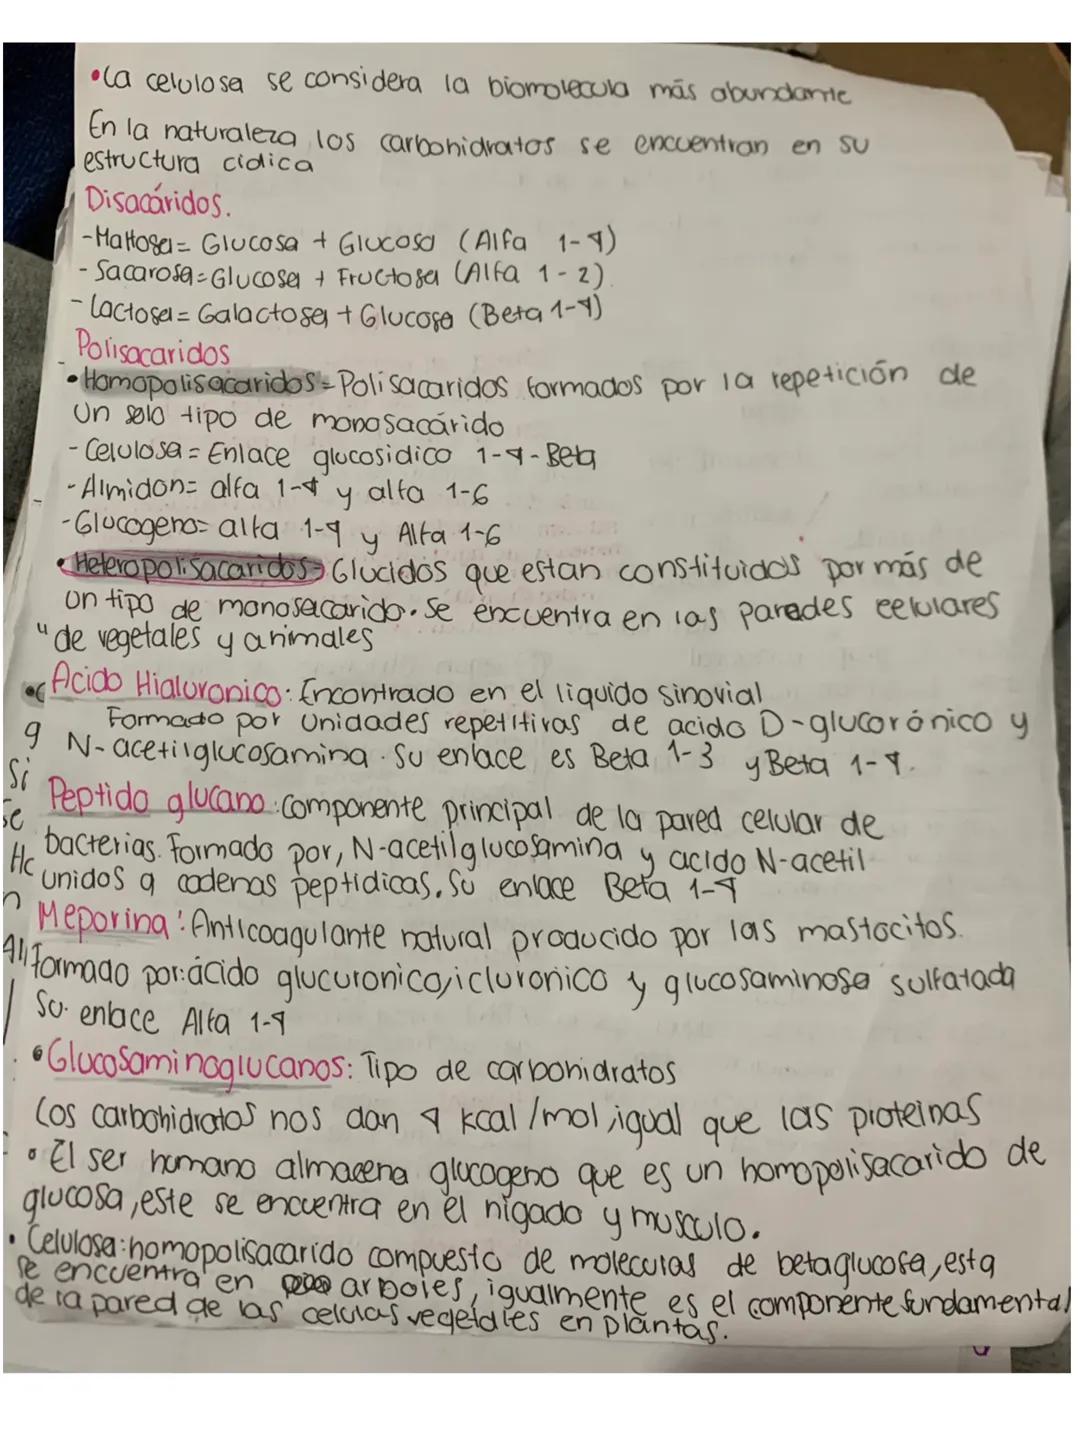 •La celulosa se considera la biomolecula más abundante
En la naturaleza los carbohidratos se encuentran en su
estructura cíclica
Disacáridos.
-Maltosa= Glucosa + Glucosa (Alfa 1-4)
- Sacarosa=Glucosa + Fructosa (Alfa 1-2)
- Lactosa= Galactosa + Glucosa (Beta 1-4)
Polisacaridos
•Homopolisacaridos=Polisacaridos formados por la repetición de
Un solo tipo de monosacárido
- Celulosa = Enlace glucosidico 1-4-Beta
-Almidon= alfa 1-4 y alfa 1-6
-Glucogeno= alfa 1-4 y Alfa 1-6
•Heteropolisacaridos= Glucidos que estan constituidos por más de
un tipo de monosacarido. Se encuentra en las paredes celulares
de vegetales y animales
•Acido Hialuronico: Encontrado en el liquido sinovial
Formado por unidades repetitivas de acido D-glucorónico y
N-acetilglucosamina. Su enlace es Beta 1-3 y Beta 1-4.
Peptido glucano: componente principal de la pared celular de
bacterias. Formado por, N-acetilglucosamina y acido N-acetil
unidos a cadenas peptidicas. Su enlace Beta 1-4
Meporina: Anticoagulante natural producido por las mastocitos.
Formado por:ácido glucuronico, icluronico y glucosaminosa sulfatada
Su. enlace Alfa 1-4
•Glucosaminoglucanos: Tipo de carbohidratos
Los carbohidratos nos dan 4 kcal/mol, igual que las proteinas
• El ser humano almacena glucogeno que es un homopolisacarido de
glucosa, este se encuentra en el higado y musculo.
• Celulosa: homopolisacarido compuesto de moleculas de betaglucosa, esta
se encuentra en arboles, igualmente es el componente fundamental
de la pared de las celulas vegetales en plantas.